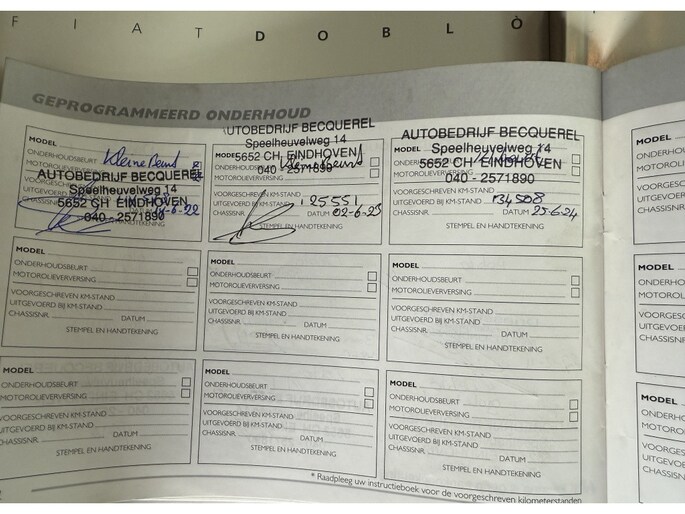 FIAT DOBLÒ
GEPROGRAMMEERD ONDERHOUD
MODEL
ONDERHOUDSBEURT Kleine Beurt
MOTOROLIEVERVERSING
AUTOBEDRIJF BECQUEREL
Speelheuvelweg 14
5652 CH EINDHOVEN
040 - 2571890
CHASSISNR. 6-22
UTOBEDRIJF BECQUEREL
Speelheuvelweg 14
5652 CH EINDHOVEN
040 - 2571890
VOORGESCHREVEN KM-STAND
UITGEVOERD BIJ KM-STAND 125551
CHASSISNR. DATUM 02-6-23
STEMPEL EN HANDTEKENING
AUTOBEDRIJF BECQUEREL
MODEL Speelheuvelweg 14
5652 CH EINDHOVEN
040 - 2571890
VOORGESCHREVEN KM-STAND
UITGEVOERD BIJ KM-STAND 134508
CHASSISNR. DATUM 25-6-24
STEMPEL EN HANDTEKENING
MODEL
ONDERHOUDSBEURT
MOTOROLIEVERVERSING
VOORGESCHREVEN KM-STAND
UITGEVOERD BIJ KM-STAND
CHASSISNR. DATUM
STEMPEL EN HANDTEKENING
MODEL
ONDERHOUDSBEURT
MOTOROLIEVERVERSING
VOORGESCHREVEN KM-STAND
UITGEVOERD BIJ KM-STAND
CHASSISNR. DATUM
STEMPEL EN HANDTEKENING
MODEL
ONDERHOUDSBEURT
MOTOROLIEVERVERSING
VOORGESCHREVEN KM-STAND
UITGEVOERD BIJ KM-STAND
CHASSISNR. DATUM
STEMPEL EN HANDTEKENING
MODEL
ONDERHOUDSBEURT
MOTOROLIEVERVERSING
VOORGESCHREVEN KM-STAND
UITGEVOERD BIJ KM-STAND
CHASSISNR. DATUM
STEMPEL EN HANDTEKENING
MODEL
ONDERHOUDSBEURT
MOTOROLIEVERVERSING
VOORGESCHREVEN KM-STAND
UITGEVOERD BIJ KM-STAND
CHASSISNR. DATUM
STEMPEL EN HANDTEKENING
MODEL
ONDERHOUDSBEURT
MOTOROLIEVERVERSING
VOORGESCHREVEN KM-STAND
UITGEVOERD BIJ KM-STAND
CHASSISNR. DATUM
STEMPEL EN HANDTEKENING
* Raadpleeg uw instructieboek voor de voorgeschreven kilometerstanden
MODEL
MODEL
MODEL